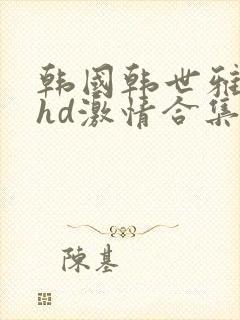 韩國韩世雅
hd激情合集
陳基